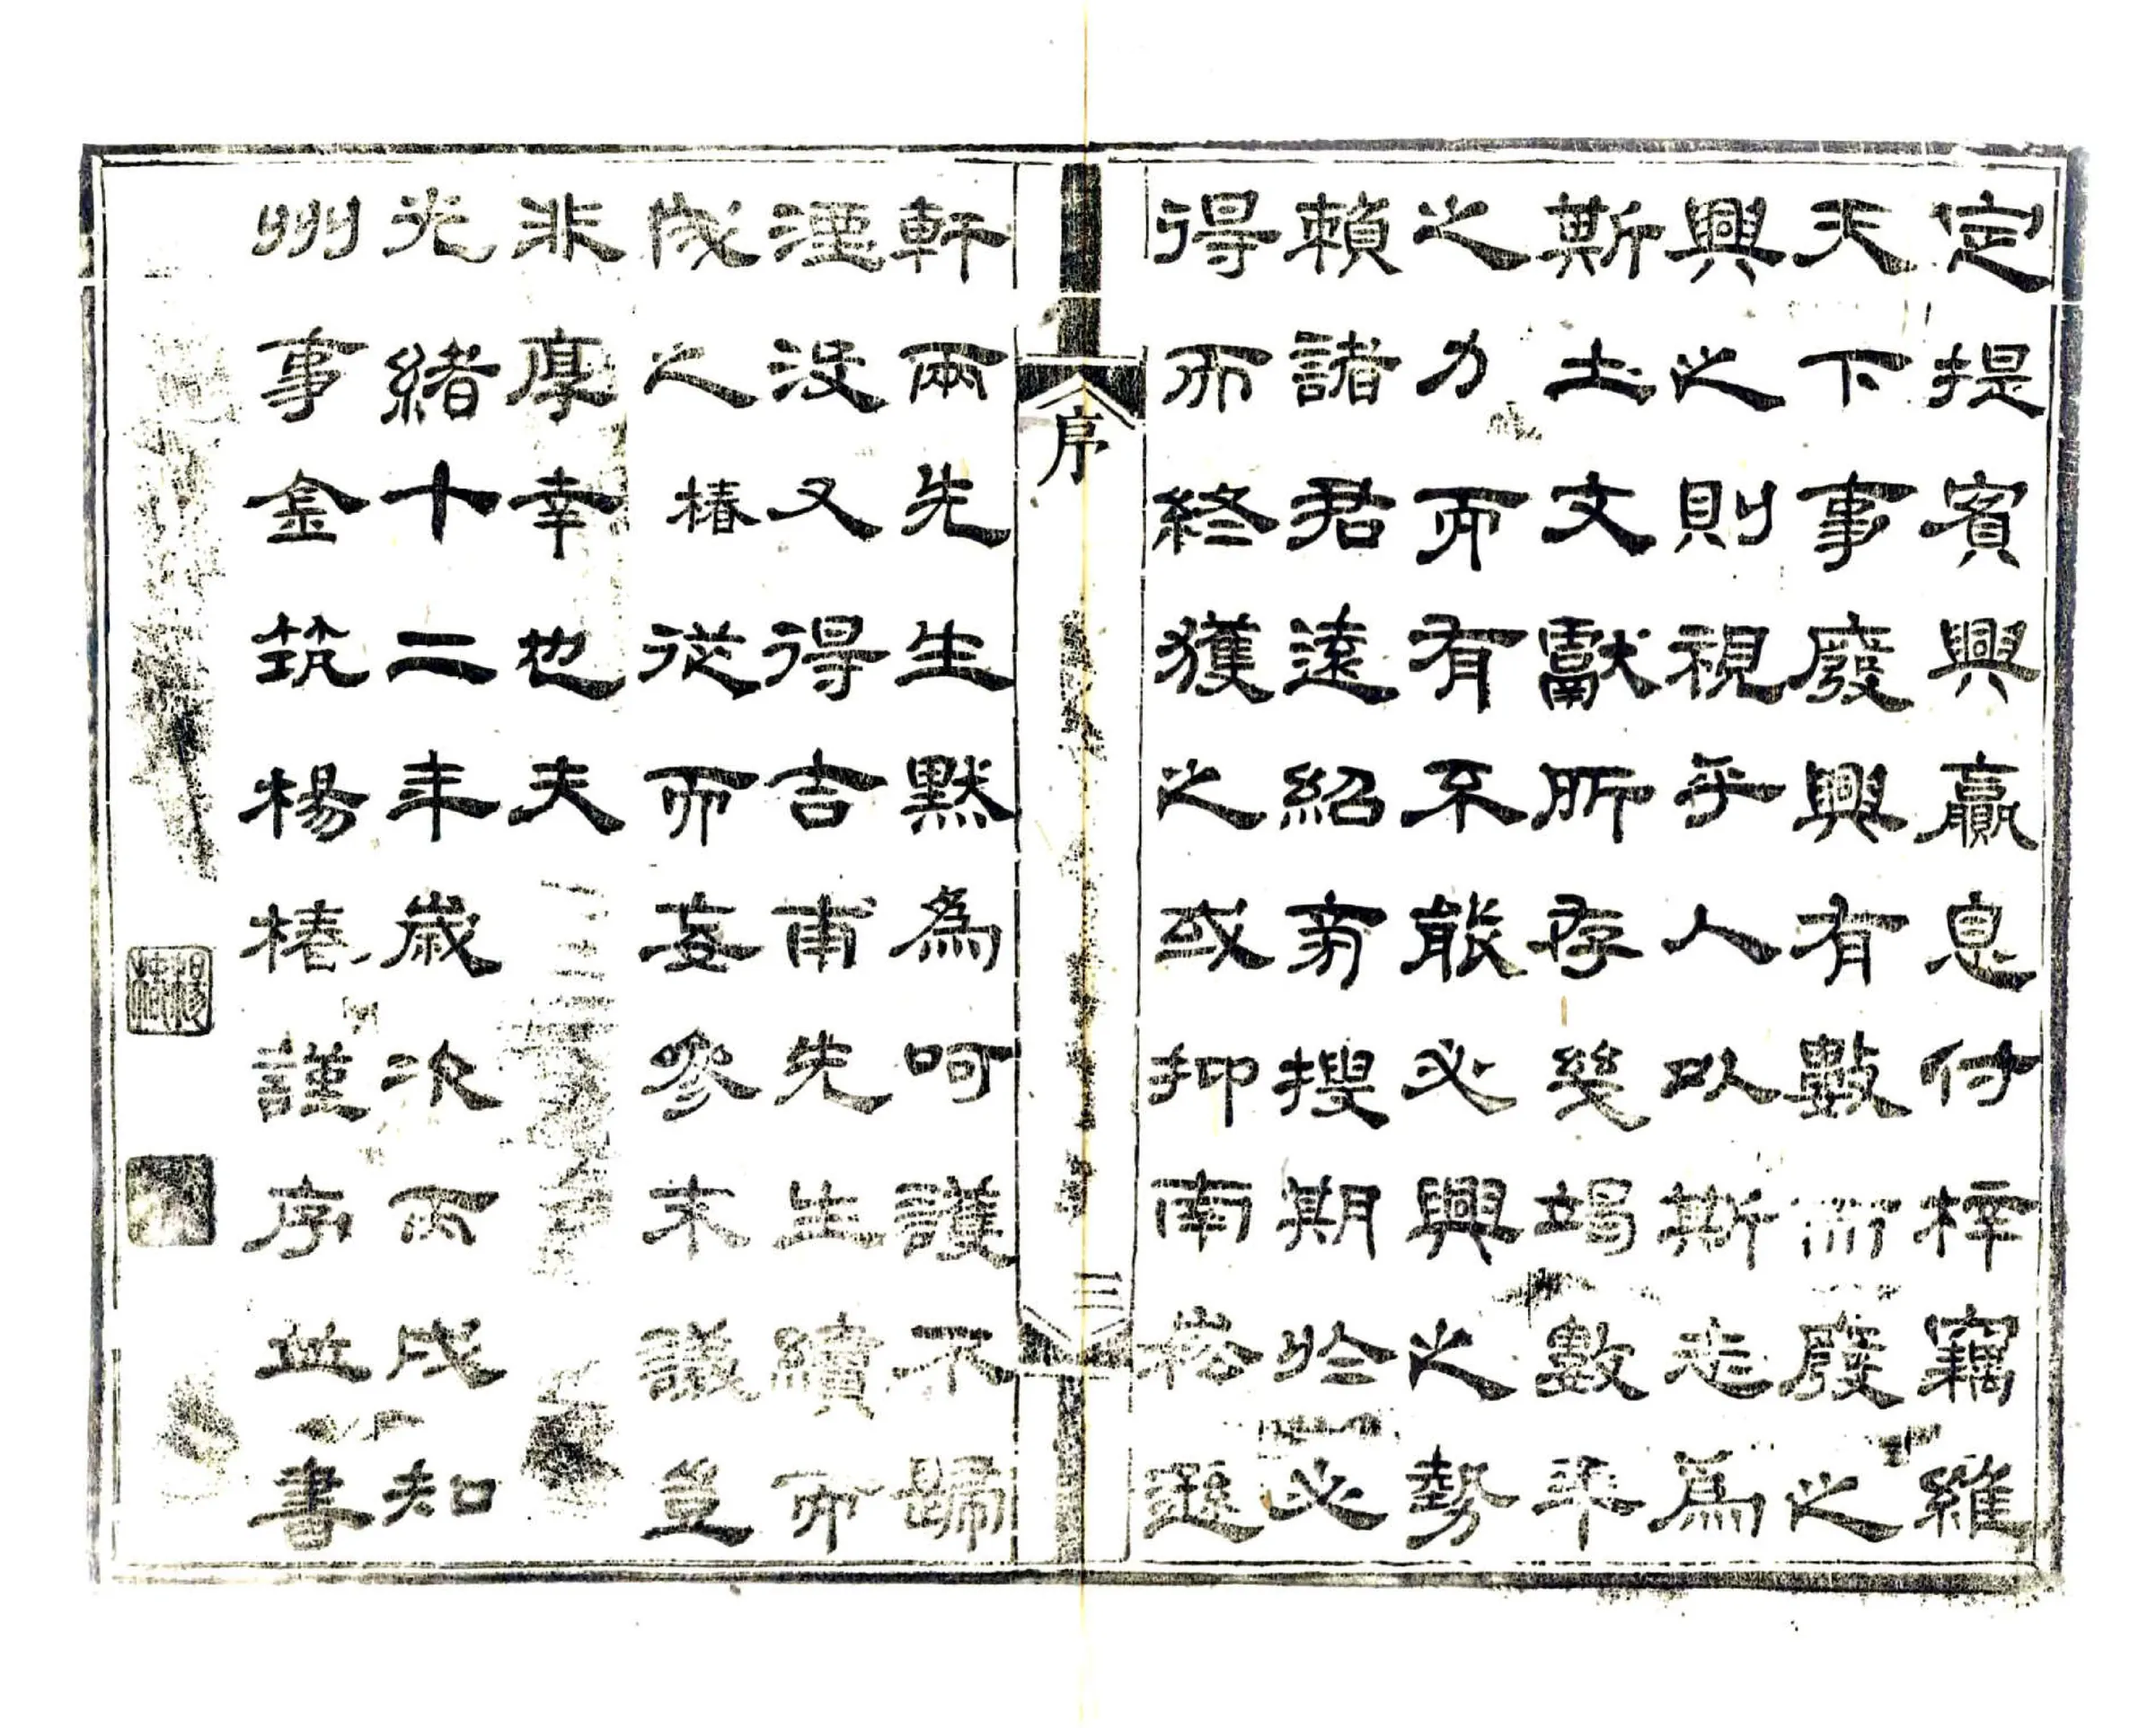 定提賓興羸息付梓竊維
天下事廢興有數而廢之
興之則視乎人以斯志為
斯土文獻所存幾竭數年
之力而有不能必興之勢
賴諸君遠紹旁搜期於必
得而終獲之或抑南崧遜
序
三
軒兩先生默為呵護不歸
湮没又得吉甫先生續而
成之椿從而妄參末議豈
非厚幸也夫
光緒十二年歲次丙戌知
州事金筑楊椿謹序並書